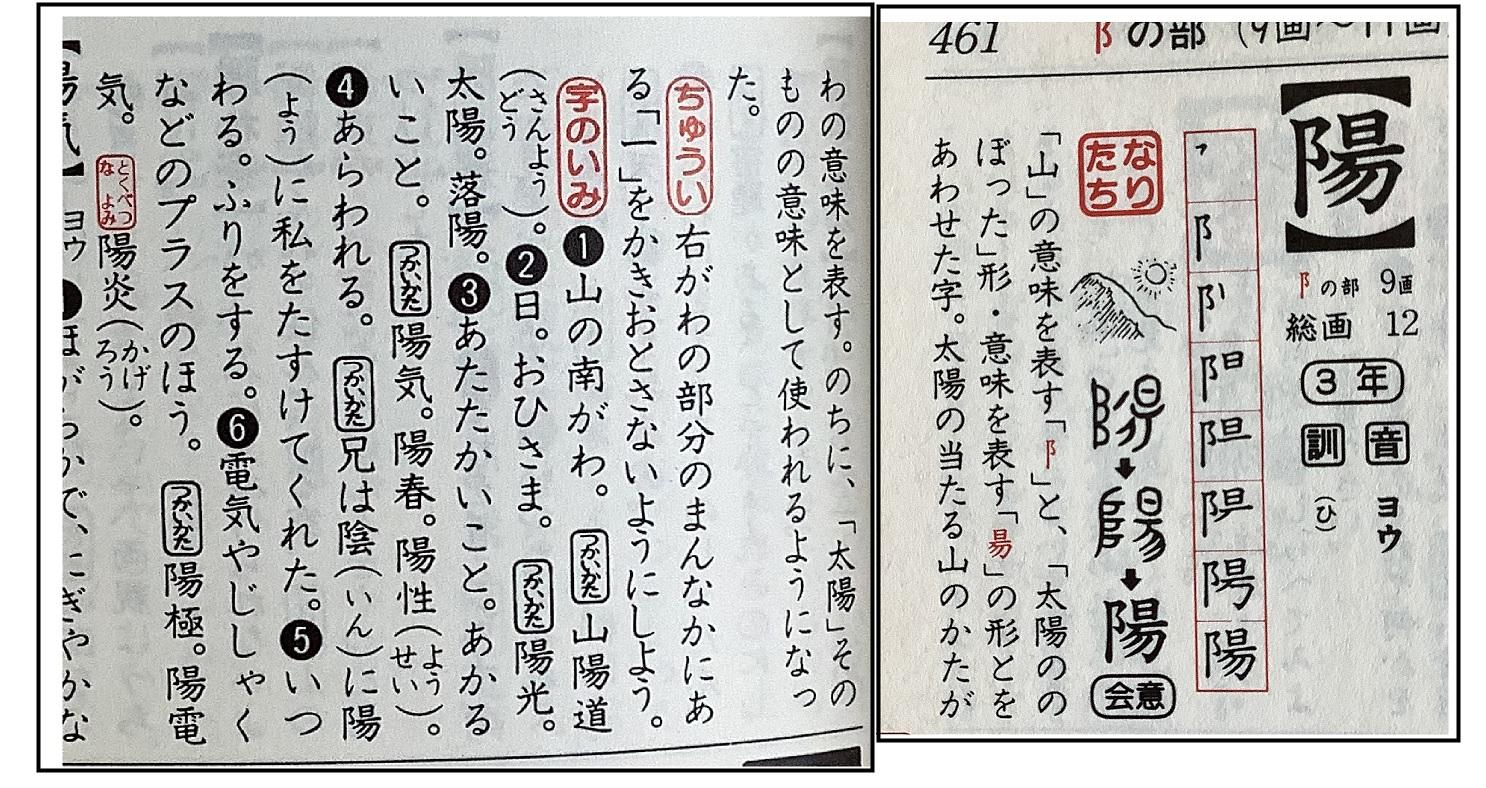 461
阝の部
【陽】
阝の部 9画
総画 12
3年
音 ヨウ
訓 (ひ)
なりたち
陽
会意
「山」の意味を表す「阝」と、「太陽のの
ぼった」形・意味を表す「昜」の形とを
あわせた字。太陽の当たる山のかたが
わの意味を表す。のちに、「太陽」その
ものの意味として使われるようになっ
た。
ちゅうい 右がわの部分のまんなかにあ
る「一」をかきおとさないようにしよう。
字のいみ ❶山の南がわ。 つかいかた 山陽道
(さんようどう)。❷日。おひさま。 つかいかた 陽光。
太陽。落陽。❸あたたかいこと。あかる
いこと。 つかいかた 陽気。陽春。陽性(ようせい)。
❹あらわれる。 つかいかた 兄は陰(いん)に陽
(よう)に私をたすけてくれた。❺いつ
わる。ふりをする。❻電気やじしゃく
などのプラスのほう。 つかいかた 陽極。陽電
気。 とくべつなよみ 陽炎(かげろう)。
【陽気】 ヨウ